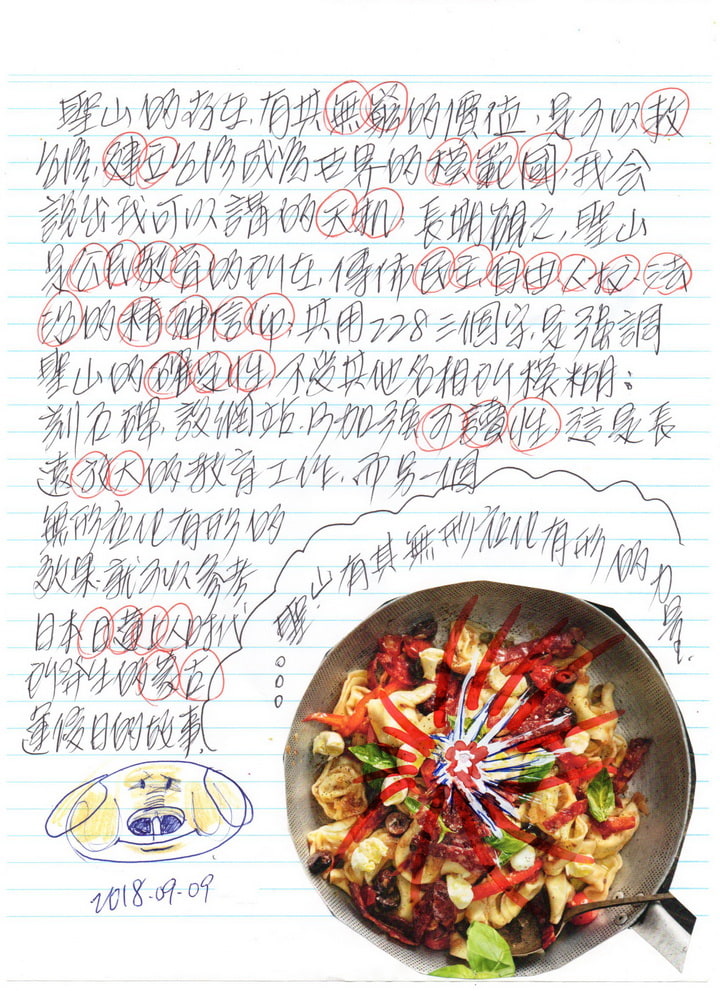 聖山的存在，有其無窮的價值，是可以救
台灣，建立台灣成為世界的模範國，我会
說出我可以講的天机，長期觀之，聖山
是公民教育的所在，傳佈民主、自由、人权、法
治的精神信仰；共用228三個字，是強調
聖山的確定性，不受其他名相所模糊；
刻石碑，設網站，以加強可讀性，這是長
遠放大的教育工作，而另一個
無形教化有形的
效果，就可以參考
日本日蓮上人時代
所發生的蒙古
軍假日的故事。
聖山有其無形教化有形的力量。
2018.09.09